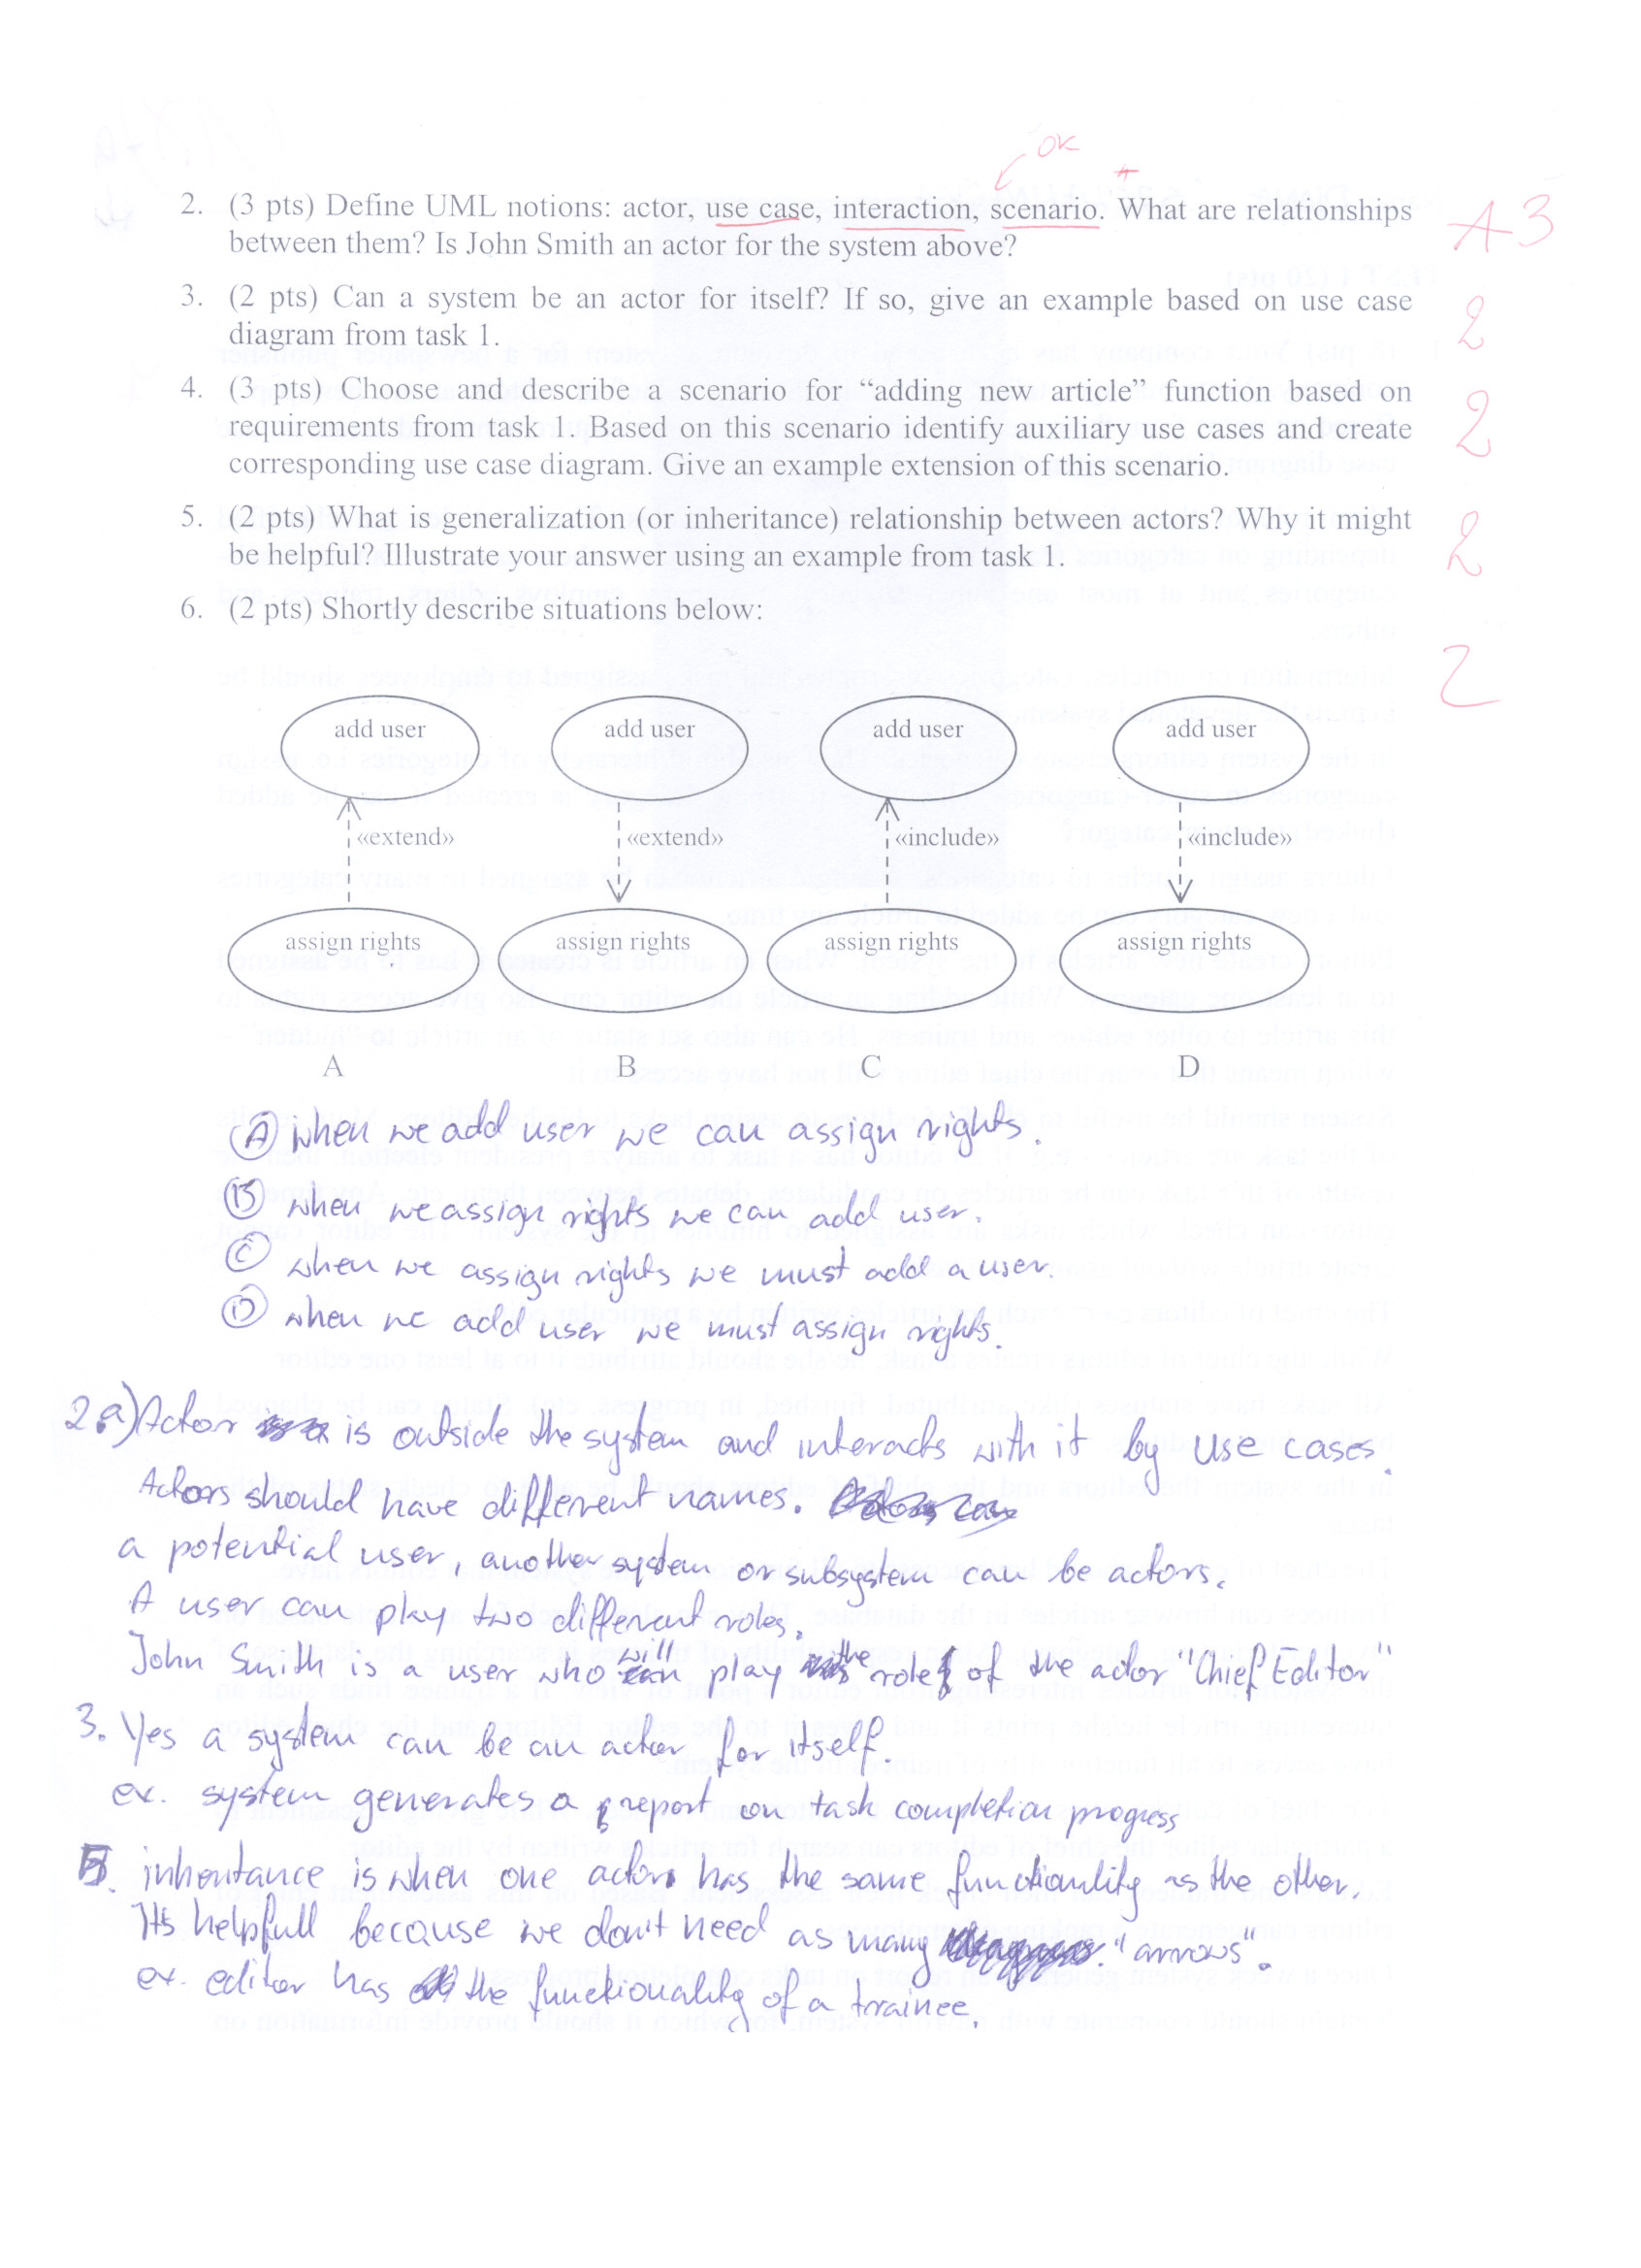 OK
2. (3 pts) Define UML notions: actor, use case, interaction, scenario. What are relationships
between them? Is John Smith an actor for the system above?
3
3. (2 pts) Can a system be an actor for itself? If so, give an example based on use case
diagram from task 1.
2
4. (3 pts) Choose and describe a scenario for “adding new article” function based on
requirements from task 1. Based on this scenario identify auxiliary use cases and create
corresponding use case diagram. Give an example extension of this scenario.
2
5. (2 pts) What is generalization (or inheritance) relationship between actors? Why it might
be helpful? Illustrate your answer using an example from task 1.
2
6. (2 pts) Shortly describe situations below:
2
add user add user add user add user
«extend» «extend» «include» «include»
assign rights assign rights assign rights assign rights
A B C D
A when we add user we can assign rights.
B when we assign rights we can add user.
C when we assign rights we must add a user.
D when we add user we must assign rights.
2.a) Actor is outside the system and interacts with it by use cases.
Actors should have different names.
a potential user, another system or subsystem can be actors.
A user can play two different roles.
John Smith is a user who will play the role of the actor "Chief Editor"
3. Yes a system can be an actor for itself.
ex. system generates a report on task completion progress
5. inheritance is when one actor has the same functionality as the other.
Its helpfull because we don't need as many "arrows".
ex. editor has the functionality of a trainee.